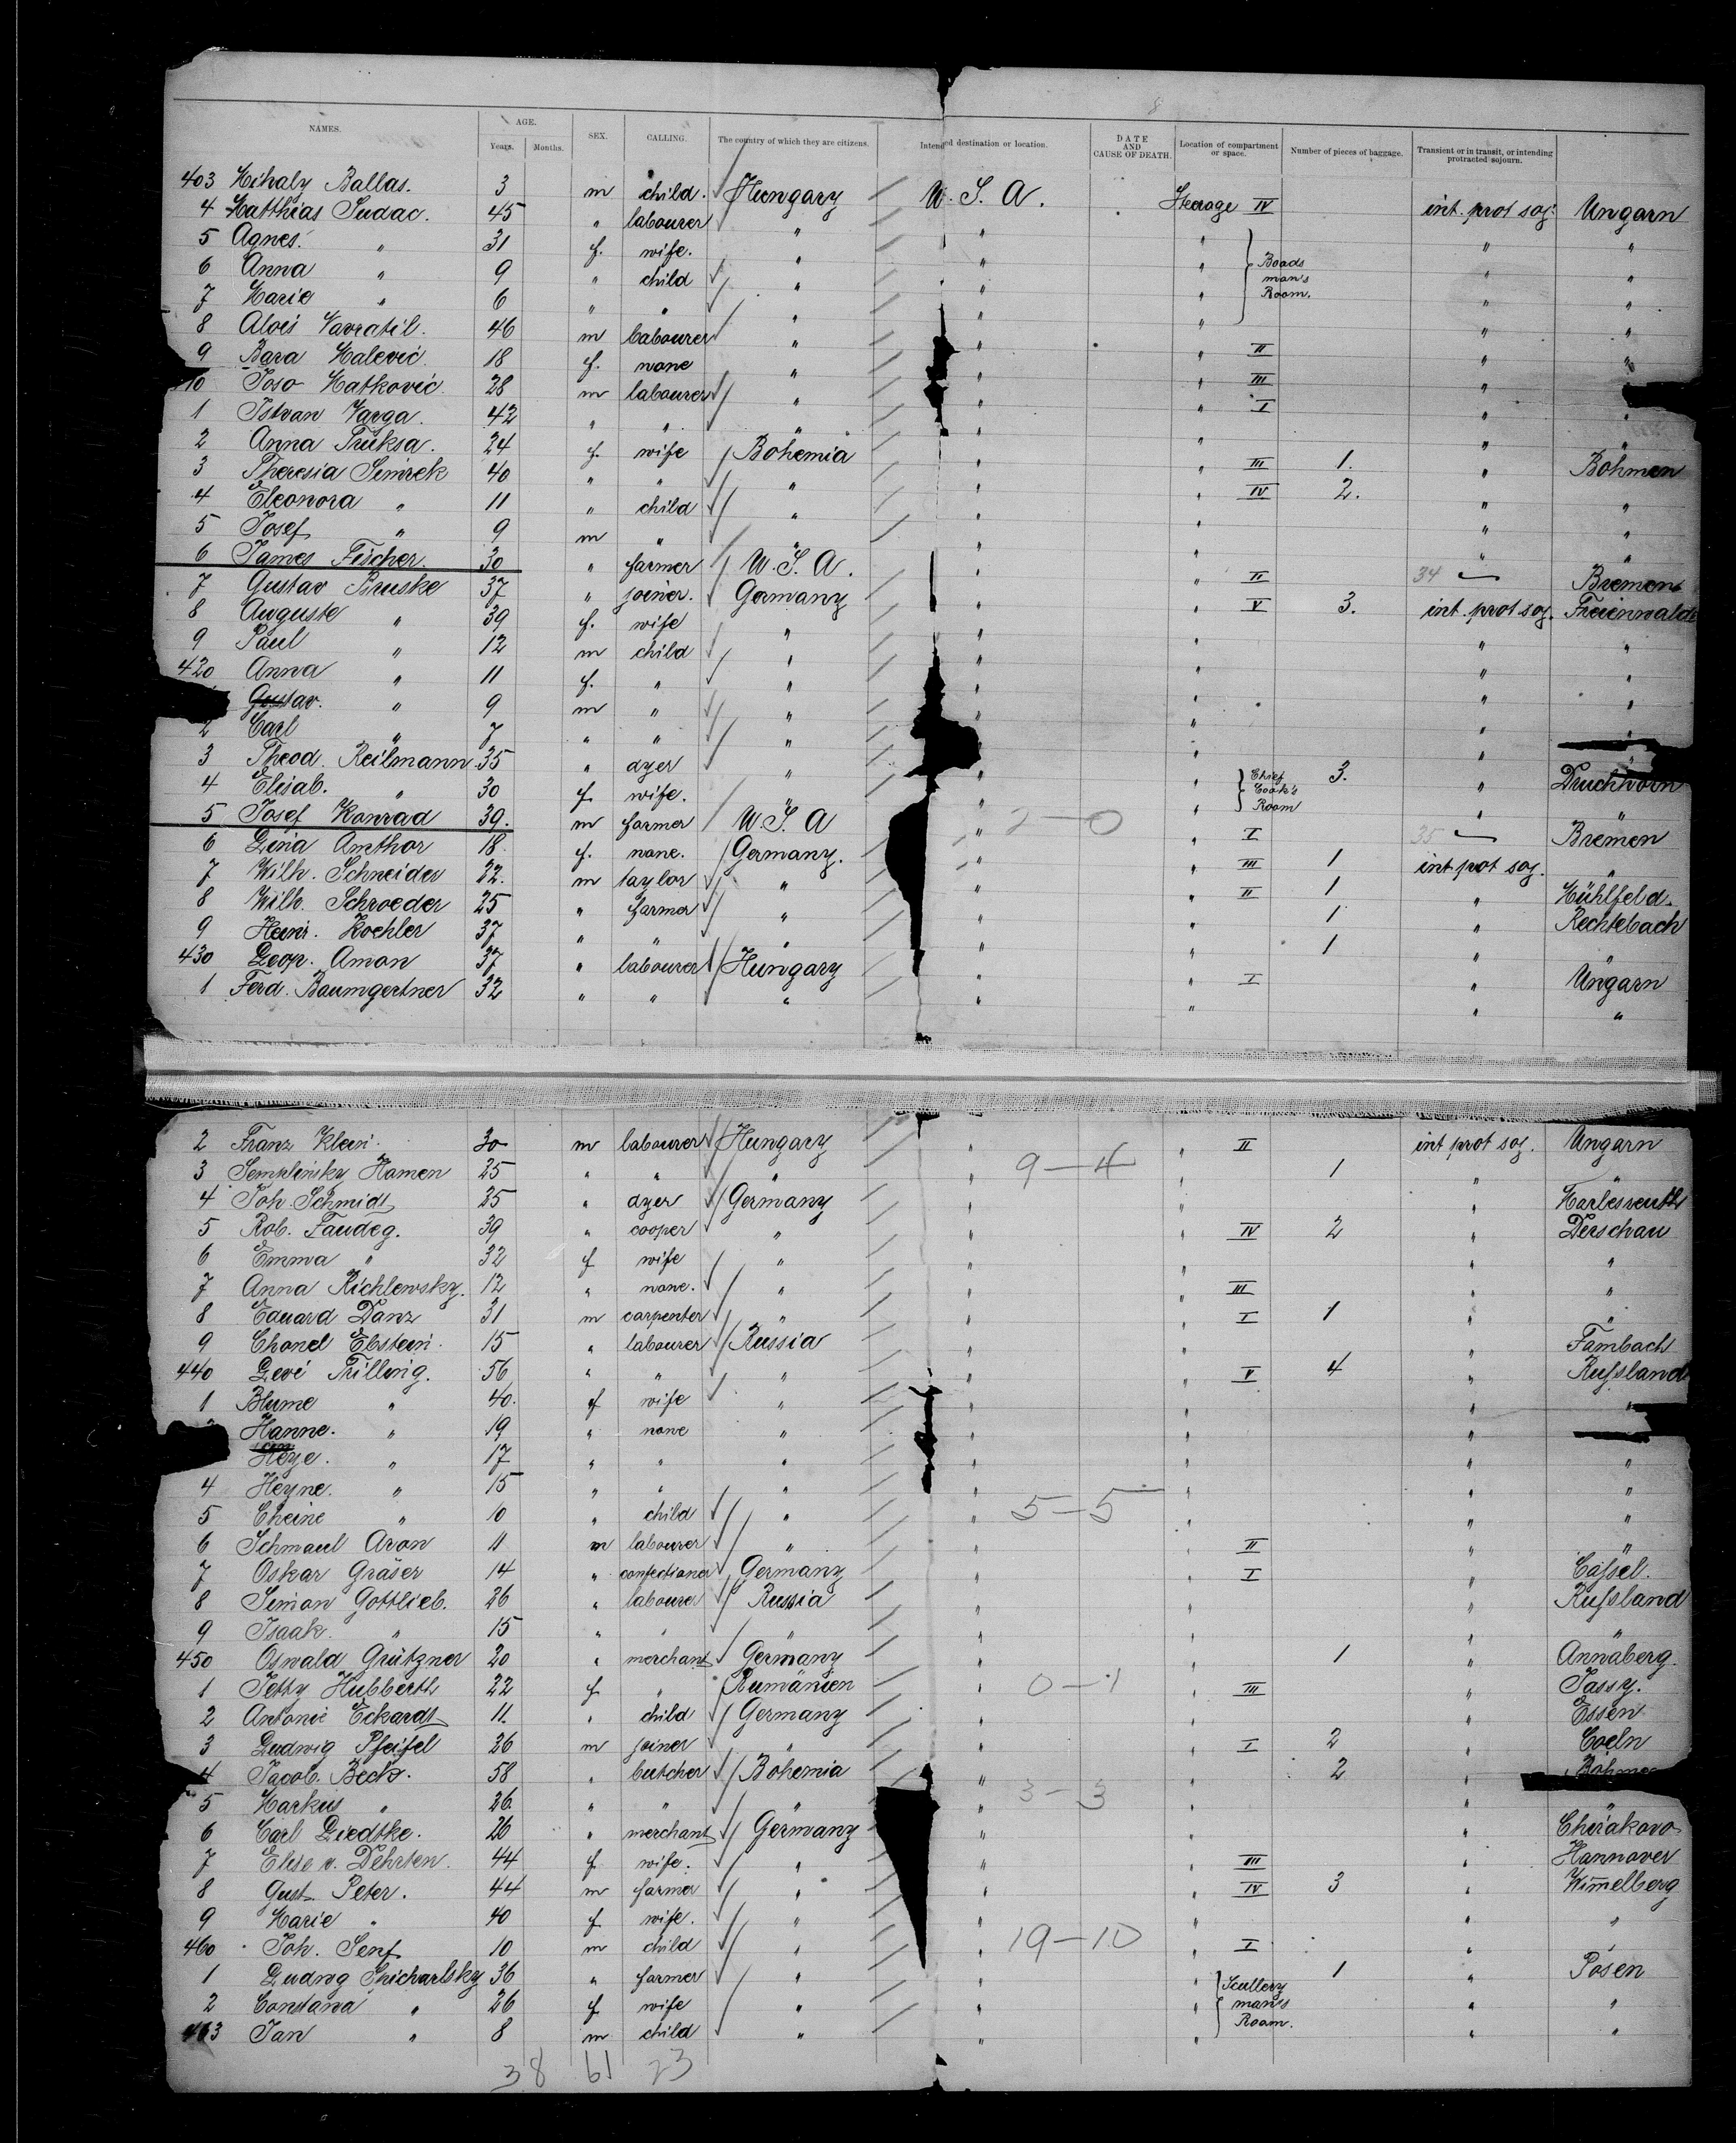 8
NAMES. AGE. Years. Months. SEX. CALLING. The country of which they are citizens. Intended destination or location. DATE AND CAUSE OF DEATH. Location of compartment or space. Number of pieces of baggage. Transient or in transit, or intending protracted sojourn.
403 Mihaly Ballas. 3 m child. Hungary U. S. A. Steerage IV int. prot soj. Ungarn
4 Matthias Sudac. 45 " labourer " " " " "
5 Agnes. " 31 f. wife. " " " Boads man's Room. " "
6 Anna " 9 " child " " " " "
7 Marie " 6 " " " " " " "
8 Alois Navratil. 46 m labourer " " " II " "
9 Bara Malevic 18 f. none " " " III " "
10 Joso Matkovic 28 m labourer " " " I " "
1 Istvan Varga. 42 " " " " " " "
2 Anna Truksa. 24 f. wife Bohemia " " III 1. " Böhmen
3 Theresia Simrek 40 " " " " " IV 2. " "
4 Eleonora " 11 " child " " " " "
5 Josef " 9 m " " " " " "
6 James Fischer. 30 " farmer U. S. A. " " II 34 Bremen
7 Gustav Bruske 37 " joiner. Germany " " V 3. int. prot soj. Freienwalde
8 Auguste " 39 f. wife " " " " "
9 Paul " 12 m child " " " " "
420 Anna " 11 f. " " " " " "
Gustav. " 9 m " " " " " "
2 Carl " 7 " " " " " " "
3 Theod. Reilmann 35 " dyer " " " Chief Cook's Room 3. " Druchhorn
4 Elisab. " 30 f. wife. " " " " "
5 Josef Konrad 39. m farmer U. S. A " 2-0 " I 35 Bremen
6 Lina Amthor 18. f. none. Germany. " " III 1 int. prot soj. "
7 Wilh. Schneider 22. m taylor " " " II 1 " Mühlfeld.
8 Wilh. Schroeder 25 " farmer " " " 1 " Rechtebach
9 Heinr. Koehler 37 " " " " " 1 " "
430 Leop. Aman 37 " labourer Hungary " " I " Ungarn
1 Ferd. Baumgertner 32 " " " " " " "
2 Franz Klein. 30 m labourer Hungary " " II int prot soj. Ungarn
3 Semplinsky Hamen 25 " " " " 9-4 " 1 " "
4 Joh. Schmidt 25 " dyer Germany " " "
5 Rob. Faudeg. 39 " cooper " " " IV 2 " Derschau
6 Emma " 32 f wife " " " " "
7 Anna Richlewsky. 12 " none. " " " III " "
8 Eduard Danz 31 m carpenter " " " I 1 " "
9 Chanel Ebstein. 15 " labourer Russia " " " Fambach
440 Levi Trilling. 56 " " " " " V 4 " Russland
1 Blume " 40. f wife " " " " "
Hanne. " 19 " none " " " "
Heye. " 17 " " " " " " "
4 Heyne. " 15 " " " " " " "
5 Cheine " 10 " child " " 5-5 " " "
6 Schmaul Aron 11 m labourer " " " II " "
7 Oskar Gräser 14 " confectioner Germany " " I " Cassel.
8 Simon Gottlieb. 26 " labourer Russia " " " Russland
9 Isaak. " 15 " " " " " " "
450 Oswald Grützner 20 " merchant Germany " " 1 " Annaberg.
1 Jetty Hubberth 22 f " Rumänien " 0-1 " III " Jassy.
2 Antonie Eckardt 11. " child Germany " " " Essen
3 Ludwig Pfeifel 26 m joiner " " " I 2 " Coeln
4 Jacob. Beck. 58 " butcher Bohemia " " 2 " Böhmen
5 Markus " 26. " " " " 3-3 " " "
6 Carl Liedtke. 26 " merchant Germany " " " Chirakowo
7 Elise v. Dehrsen. 44 f wife. " " " III " Hannover
8 Gust. Peter. 44 m farmer " " " IV 3 " Wimmelberg
9 Marie " 40 f wife. " " " " "
460 Joh. Senf 10 m child " " 19-10 " I "
1 Ludwig Spicharlsky 36 " farmer " " " Scullery man's Room. 1 " Posen
2 Constana " 26 f wife " " " " "
463 Jan " 8 m child " " " " "
38 61 23